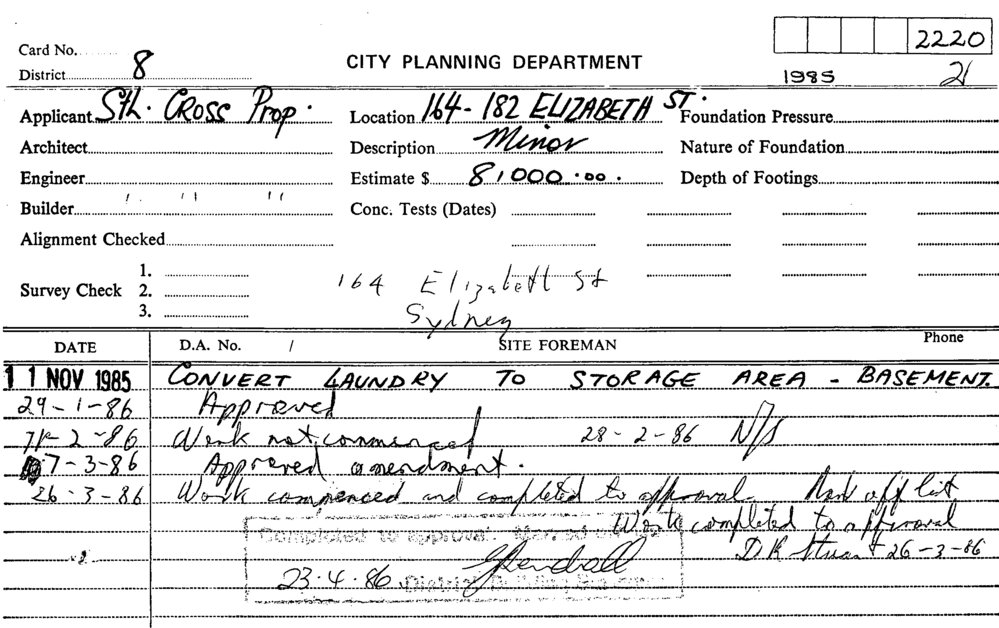 2220
Card No.
District 8
CITY PLANNING DEPARTMENT
1985 21
Applicant Sth. CROSS Prop.
Location 164-182 ELIZABETH ST.
Foundation Pressure
Architect
Description Minor
Nature of Foundation
Engineer
Estimate $ 81000.00.
Depth of Footings
Builder " " "
Conc. Tests (Dates)
Alignment Checked
Survey Check 1.
2.
3.
164 Elizabeth St
Sydney
DATE D.A. No. / SITE FOREMAN Phone
11 NOV 1985 CONVERT LAUNDRY TO STORAGE AREA - BASEMENT.
29-1-86 Approved
-2-86 Work not commenced 28-2-86 N/S
7-3-86 Approved amendment.
26-3-86 Work commenced and completed to approval. Mark off list
Work completed to approval
D R Stuart 26-3-86
Completed to approval. Marked off list
23.4.86 District Building